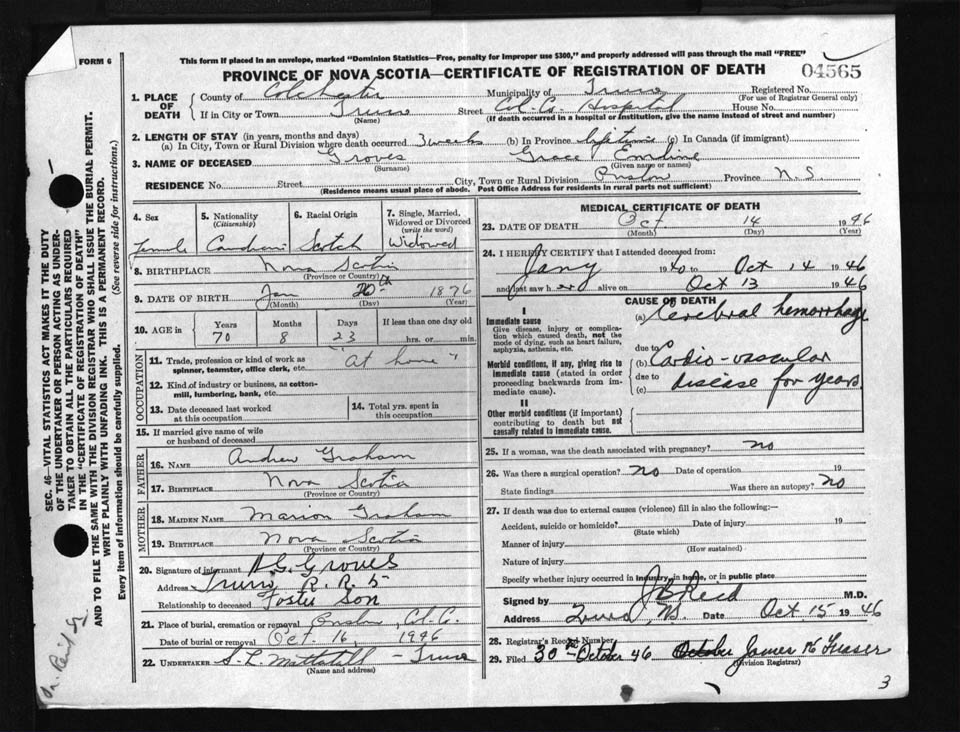 This form if placed in an envelope, marked "Dominion Statistics—Free, penalty for improper use $300," and properly addressed will pass through the mail "FREE"
FORM 6
PROVINCE OF NOVA SCOTIA—CERTIFICATE OF REGISTRATION OF DEATH
04565
1. PLACE OF DEATH
County of Colchester Municipality of Truro Registered No.
(For use of Registrar General only)
If in City or Town Truro Street Col. Co. Hospital House No.
(Name) (If death occurred in a hospital or institution, give the name instead of street and number)
2. LENGTH OF STAY (in years, months and days)
(a) In City, Town or Rural Division where death occurred 3 weeks (b) In Province lifetime (c) In Canada (if immigrant)
3. NAME OF DECEASED Groves Grace Emiline
(Surname) (Given name or names)
RESIDENCE No. Street City, Town or Rural Division Onslow Province N.S.
(Residence means usual place of abode. Post Office Address for residents in rural parts not sufficient)
4. Sex
Female
5. Nationality
(Citizenship)
Canadian
6. Racial Origin
Scotch
7. Single, Married, Widowed or Divorced
(write the word)
Widowed
8. BIRTHPLACE Nova Scotia
(Province or Country)
9. DATE OF BIRTH Jan 20th 1876
(Month) (Day) (Year)
10. AGE in
Years Months Days If less than one day old
70 8 23 hrs. or min.
OCCUPATION
11. Trade, profession or kind of work as spinner, teamster, office clerk, etc. "At home"
12. Kind of industry or business, as cotton-mill, lumbering, bank, etc.
13. Date deceased last worked at this occupation
14. Total yrs. spent in this occupation
15. If married give name of wife or husband of deceased
FATHER
16. NAME Andrew Graham
17. BIRTHPLACE Nova Scotia
(Province or Country)
MOTHER
18. MAIDEN NAME Marion Graham
19. BIRTHPLACE Nova Scotia
(Province or Country)
20. Signature of informant Groves
Address Truro R. R. 5
Relationship to deceased Foster Son
21. Place of burial, cremation or removal Onslow, Col. Co.
Date of burial or removal Oct. 16, 1946
22. UNDERTAKER S. L. Mattatall - Truro
(Name and address)
MEDICAL CERTIFICATE OF DEATH
23. DATE OF DEATH Oct 14 1946
(Month) (Day) (Year)
24. I HEREBY CERTIFY that I attended deceased from:
Jany 1940 to Oct 14 1946
and last saw her alive on Oct 13 1946
CAUSE OF DEATH
I
Immediate cause
Give disease, injury or complication which caused death, not the mode of dying, such as heart failure, asphyxia, asthenia, etc.
(a) Cerebral hemorrhage
due to
Morbid conditions, if any, giving rise to immediate cause (stated in order proceeding backwards from immediate cause).
(b) Cardio-vascular
due to
(c) disease for years
II
Other morbid conditions (if important) contributing to death but not causally related to immediate cause.
25. If a woman, was the death associated with pregnancy? no
26. Was there a surgical operation? no Date of operation 19
State findings Was there an autopsy? no
27. If death was due to external causes (violence) fill in also the following:—
Accident, suicide or homicide? Date of injury 19
(State which)
Manner of injury
(How sustained)
Nature of injury
Specify whether injury occurred in industry, in home, or in public place
Signed by Reid M.D.
Address Truro, NS. Date Oct 15 1946
28. Registrar's Record Number
29. Filed 30th October 46 October James Fraser
(Division Registrar)
3
SEC. 46—VITAL STATISTICS ACT MAKES IT THE DUTY
OF THE UNDERTAKER OR PERSON ACTING AS UNDER-
TAKER TO OBTAIN ALL THE PARTICULARS REQUIRED
IN THE "CERTIFICATE OF REGISTRATION OF DEATH"
AND TO FILE THE SAME WITH THE DIVISION REGISTRAR WHO SHALL ISSUE THE BURIAL PERMIT.
WRITE PLAINLY WITH UNFADING INK. THIS IS A PERMANENT RECORD.
Every item of information should be carefully supplied. (See reverse side for instructions.)